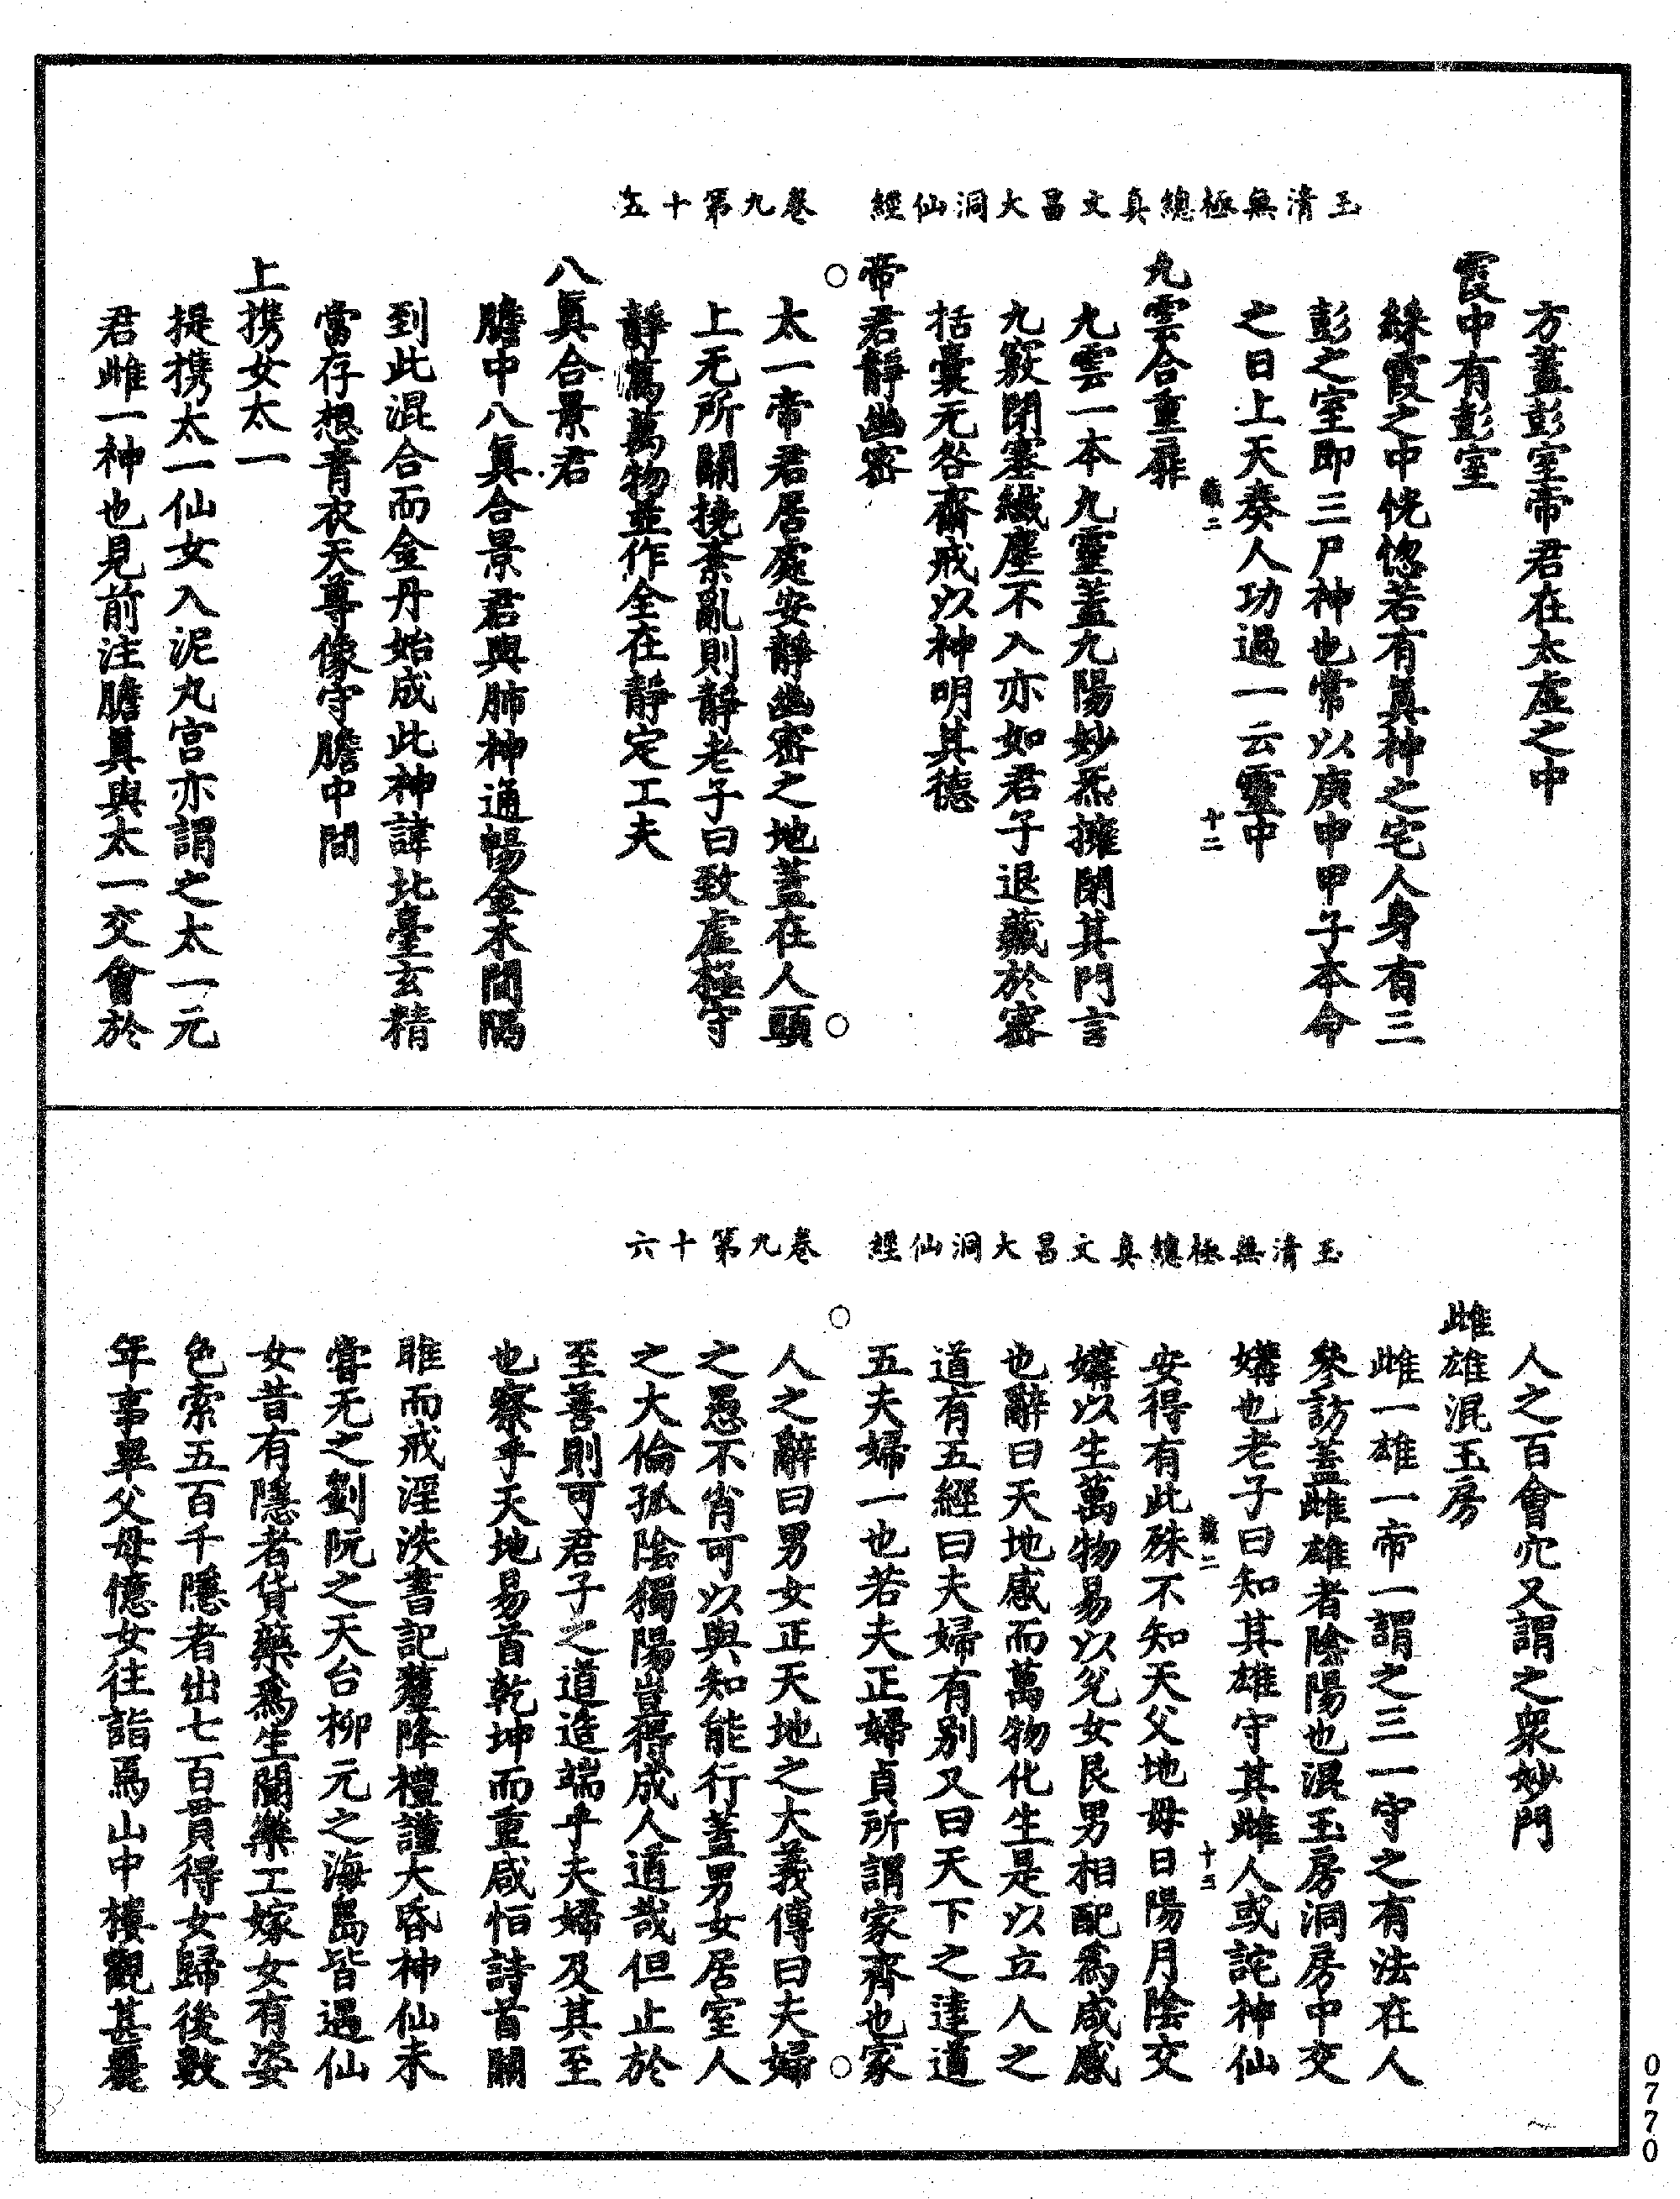 玉清無極總真文昌大洞仙經　卷九第十五
方蓋彭室帝君在太虛之中
霞中有彭室
綠霞之中恍惚若有眞神之宅人身有三
彭之室即三尸神也常以庚申甲子本命
之日上天奏人功過一云靈中
藏二　十二
九雲合重扉
九雲一本九靈蓋九陽妙炁擁閉其門言
九竅閉塞纖塵不入亦如君子退藏於密
括囊无咎齋戒以神明其德
帝君靜幽密
太一帝君居處安靜幽密之地蓋在人頭
上无所關撓紊亂則靜老子曰致虛極守
靜篤萬物並作全在靜定工夫
八眞合景君
膽中八眞合景君與肺神通暢金木間隔
到此混合而金丹始成此神諱北臺玄精
當存想青衣天尊像守膽中間
上携女太一
提携太一仙女入泥丸宮亦謂之太一元
君雌一神也見前注膽眞與太一交會於
玉清無極總真文昌大洞仙經　卷九第十六
人之百會穴又謂之衆妙門
雌雄混玉房
雌一雄一帝一謂之三一守之有法在人
參訪蓋雌雄者陰陽也混玉房洞房中交
媾也老子曰知其雄守其雌人或詫神仙
安得有此殊不知天父地母日陽月陰交
藏二　十三
媾以生萬物易以兌女艮男相配爲咸感
也辭曰天地感而萬物化生是以立人之
道有五經曰夫婦有别又曰天下之達道
五夫婦一也若夫正婦貞所謂家齊也家
人之辭曰男女正天地之大義傳曰夫婦
之愚不肖可以與知能行蓋男女居室人
之大倫孤陰獨陽豈得成人道哉但止於
至善則可君子之道造端乎夫婦及其至
也察乎天地易首乾坤而重咸恒詩首關
雎而戒淫泆書記釐降禮謹大昏神仙未
嘗无之劉阮之天台柳元之海島皆遇仙
女昔有隱者貨藥爲生閭樂工嫁女有姿
色索五百千隱者出七百貫得女歸後數
年事畢父母憶女往詣焉山中樓觀甚麗
0770